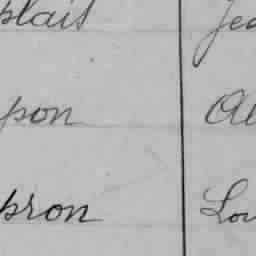 plait Jea
pon Al
pron Lou